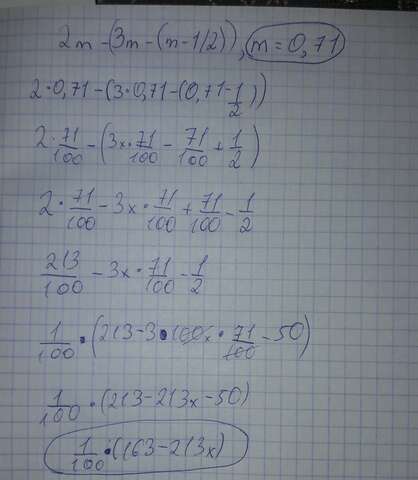 2m-(3m-(m-1/2)), m=0,71
2*0,71-(3*0,71-(0,71-1/2))
2*71/100-(3x*71/100-71/100+1/2)
2*71/100-3x*71/100+71/100-1/2
213/100-3x*71/100-1/2
1/100*(213-3*100x*71/100-50)
1/100*(213-213x-50)
1/100*(163-213x)